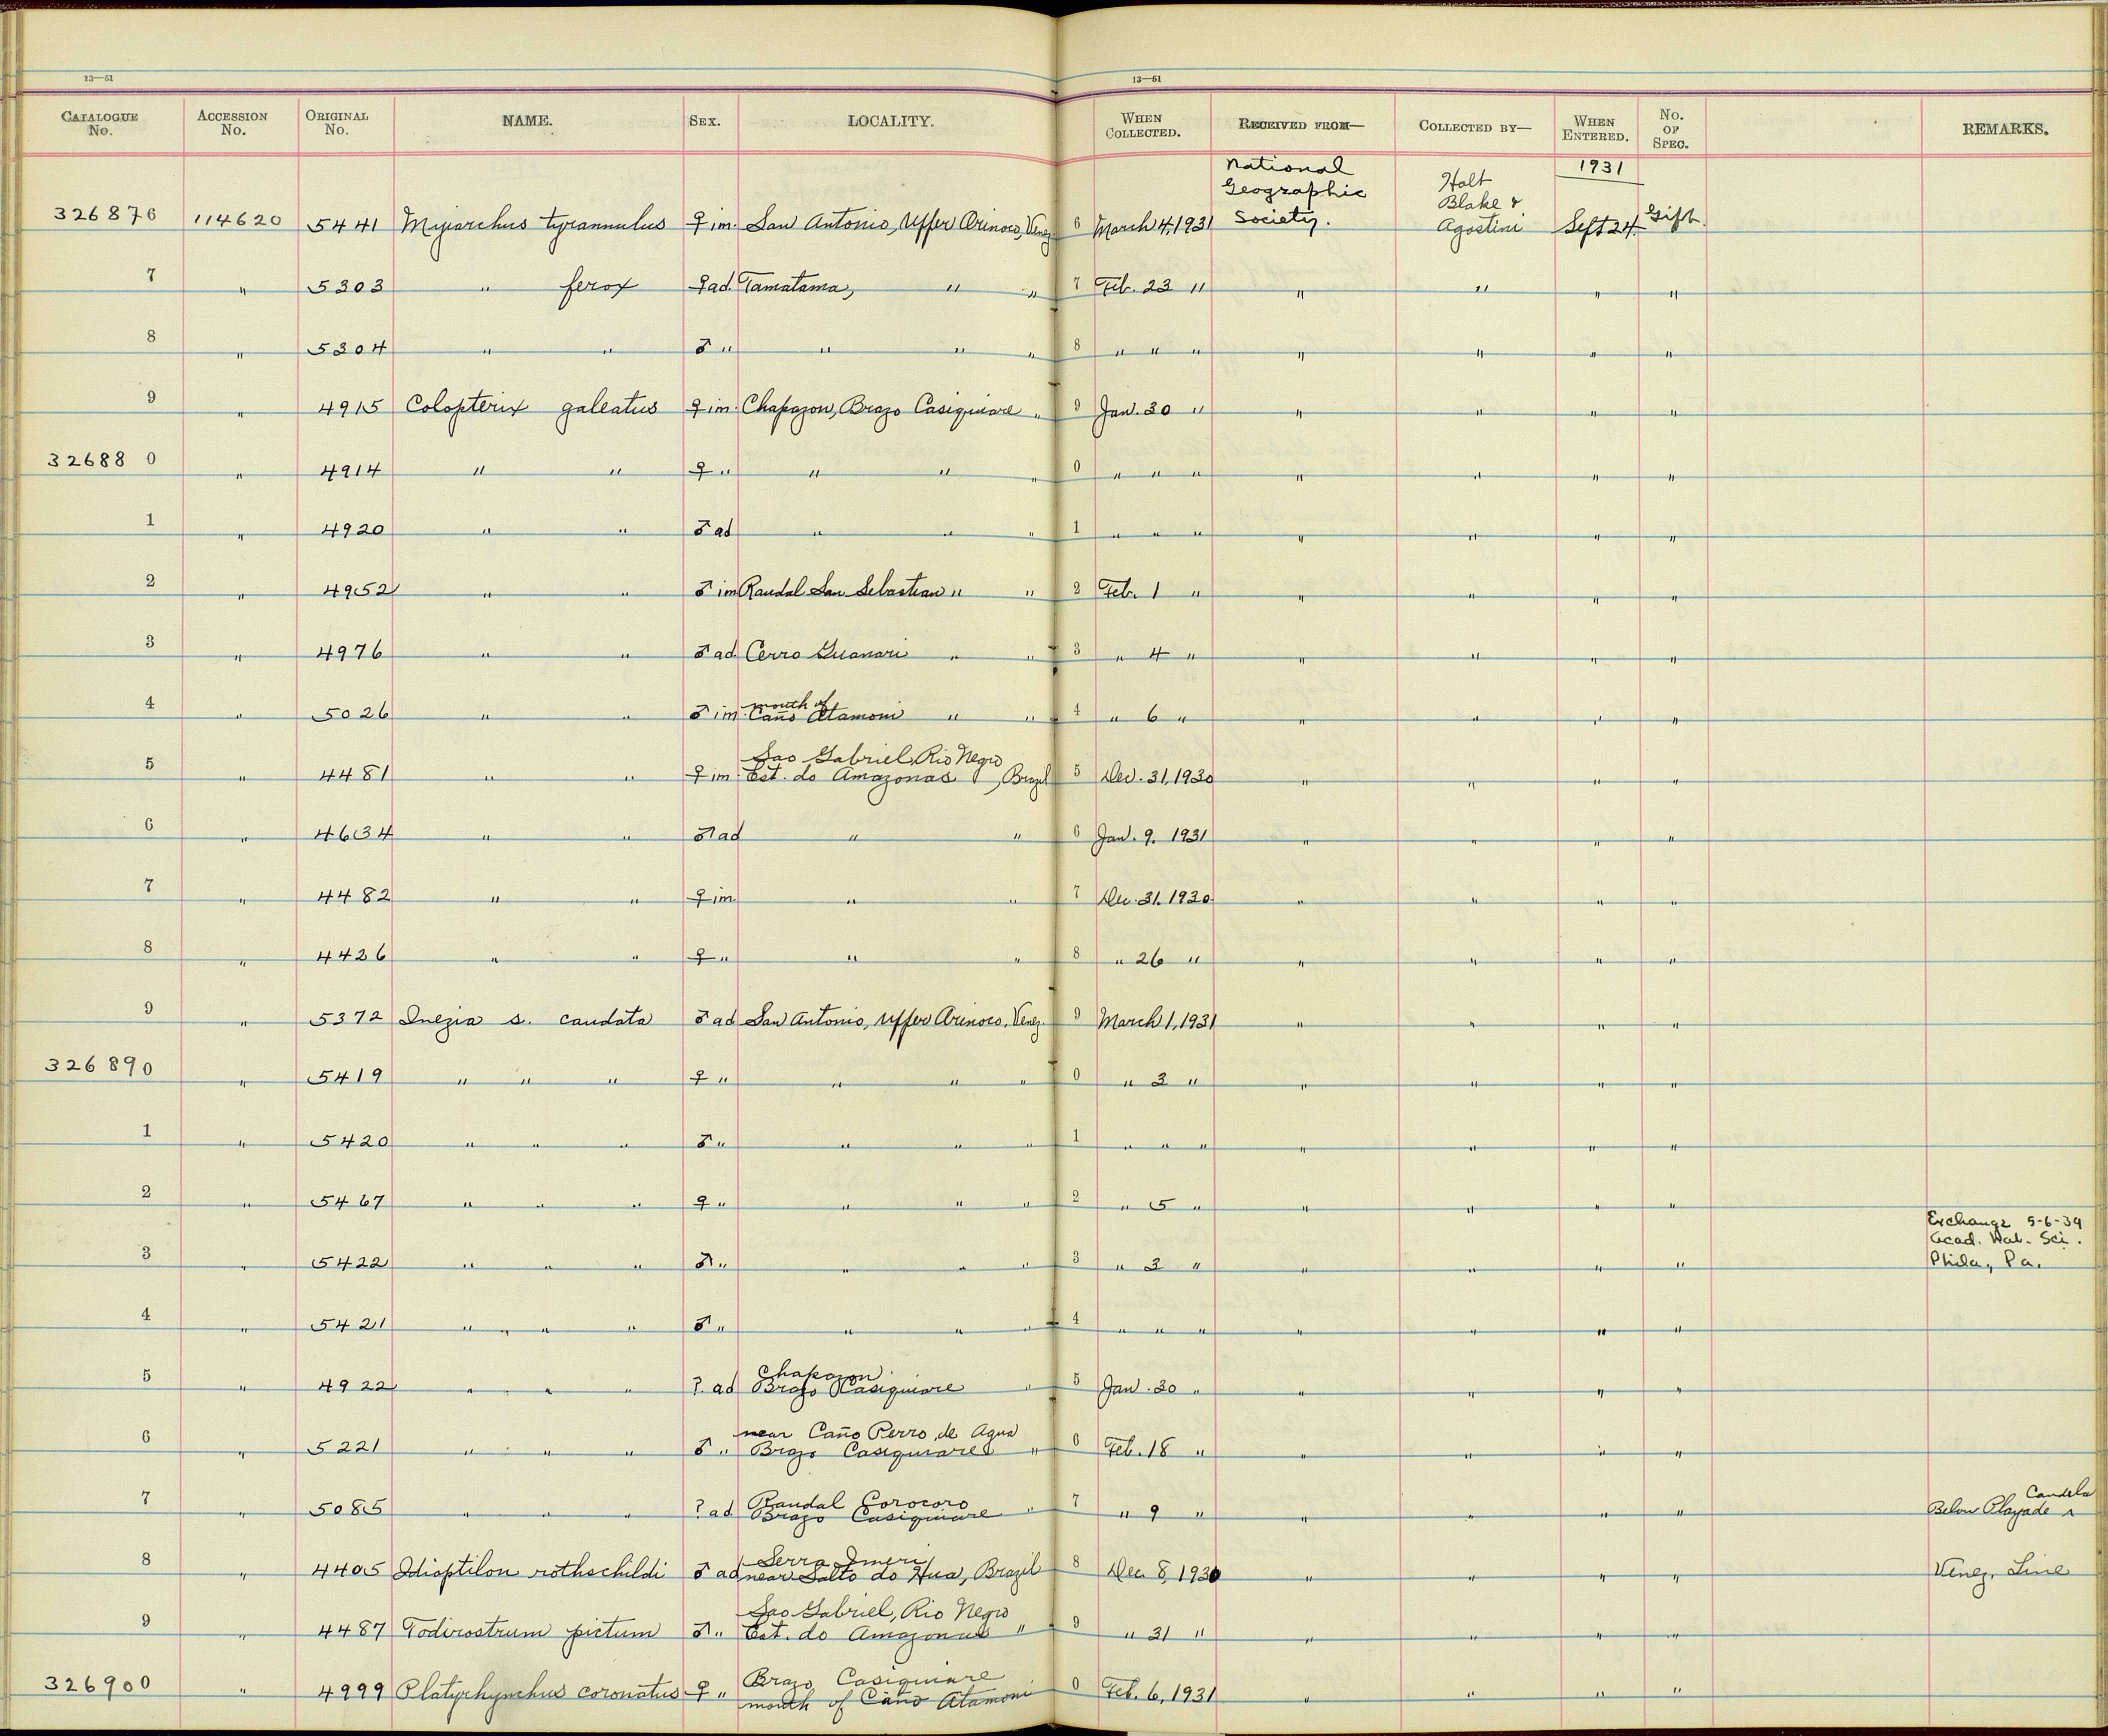 13—51 13—51
CATALOGUE No. ACCESSION No. ORIGINAL No. NAME. SEX. LOCALITY. WHEN COLLECTED. RECEIVED FROM— COLLECTED BY— WHEN ENTERED. No. OF SPEC. REMARKS.
National Geographic Society. Holt Blake & Agostini 1931
326876 114620 5441 Myiarchus tyrannulus ♀ im. San Antonio, Upper Orinoco, Venez. 6 March 4, 1931 Sept 24. Gift.
7 " 5303 " ferox ♀ ad. Tamatama, " " 7 Feb. 23 " " " " "
8 " 5304 " " ♂ " " " " 8 " " " " " " "
9 " 4915 Colopterix galeatus ♀ im. Chapazon, Brazo Casiquiare " 9 Jan. 30 " " " " "
326880 " 4914 " " ♀ " " " " 0 " " " " " " "
1 " 4920 " " ♂ ad " " " 1 " " " " " " "
2 " 4952 " " ♂ im Raudal San Sebastian " " 2 Feb. 1 " " " " "
3 " 4976 " " ♂ ad. Cerro Guanari " " 3 " 4 " " " " "
4 " 5026 " " ♂ im. mouth of Caño Atamoni " " 4 " 6 " " " " "
5 " 4481 " " ♀ im. Sao Gabriel, Rio Negro
Est. do Amazonas, Brazil 5 Dec. 31, 1930 " " " "
6 " 4634 " " ♂ ad " " 6 Jan. 9, 1931 " " " "
7 " 4482 " " ♀ im " " 7 Dec. 31, 1930 " " " "
8 " 4426 " " ♀ " " " 8 " 26 " " " " "
9 " 5372 Inezia s. caudata ♂ ad San Antonio, Upper Orinoco, Venez. 9 March 1, 1931 " " " "
326890 " 5419 " " " ♀ " " " " 0 " 3 " " " " "
1 " 5420 " " " ♂ " " " " 1 " " " " " " "
2 " 5467 " " " ♀ " " " " 2 " 5 " " " " "
Exchange 5-6-39
Acad. Nat. Sci.
3 " 5422 " " " ♂ " " " " 3 " 3 " " " " " Phila, Pa.
4 " 5421 " " " ♂ " " " " 4 " " " " " " "
5 " 4922 " " " ? ad Chapazon
Brazo Casiquiare " 5 Jan. 30 " " " " "
6 " 5221 " " " ♂ " near Caño Perro de Agua
Brazo Casiquiare " 6 Feb. 18 " " " " "
7 " 5085 " " " ? ad. Raudal Corocoro
Brazo Casiquiare " 7 " 9 " " " " " Below Playa de Candela
8 " 4405 Idioptilon rothschildi ♂ ad Serra Imeri
near Salto do Hua, Brazil 8 Dec. 8, 1930 " " " " Venez. Line
9 " 4487 Todirostrum pictum ♂ " Sao Gabriel, Rio Negro
Est. do Amazonas " 9 " 31 " " " " "
326900 " 4999 Platyrhynchus coronatus ♀ " Brazo Casiquiare
mouth of Caño Atamoni 0 Feb. 6, 1931 " " " "